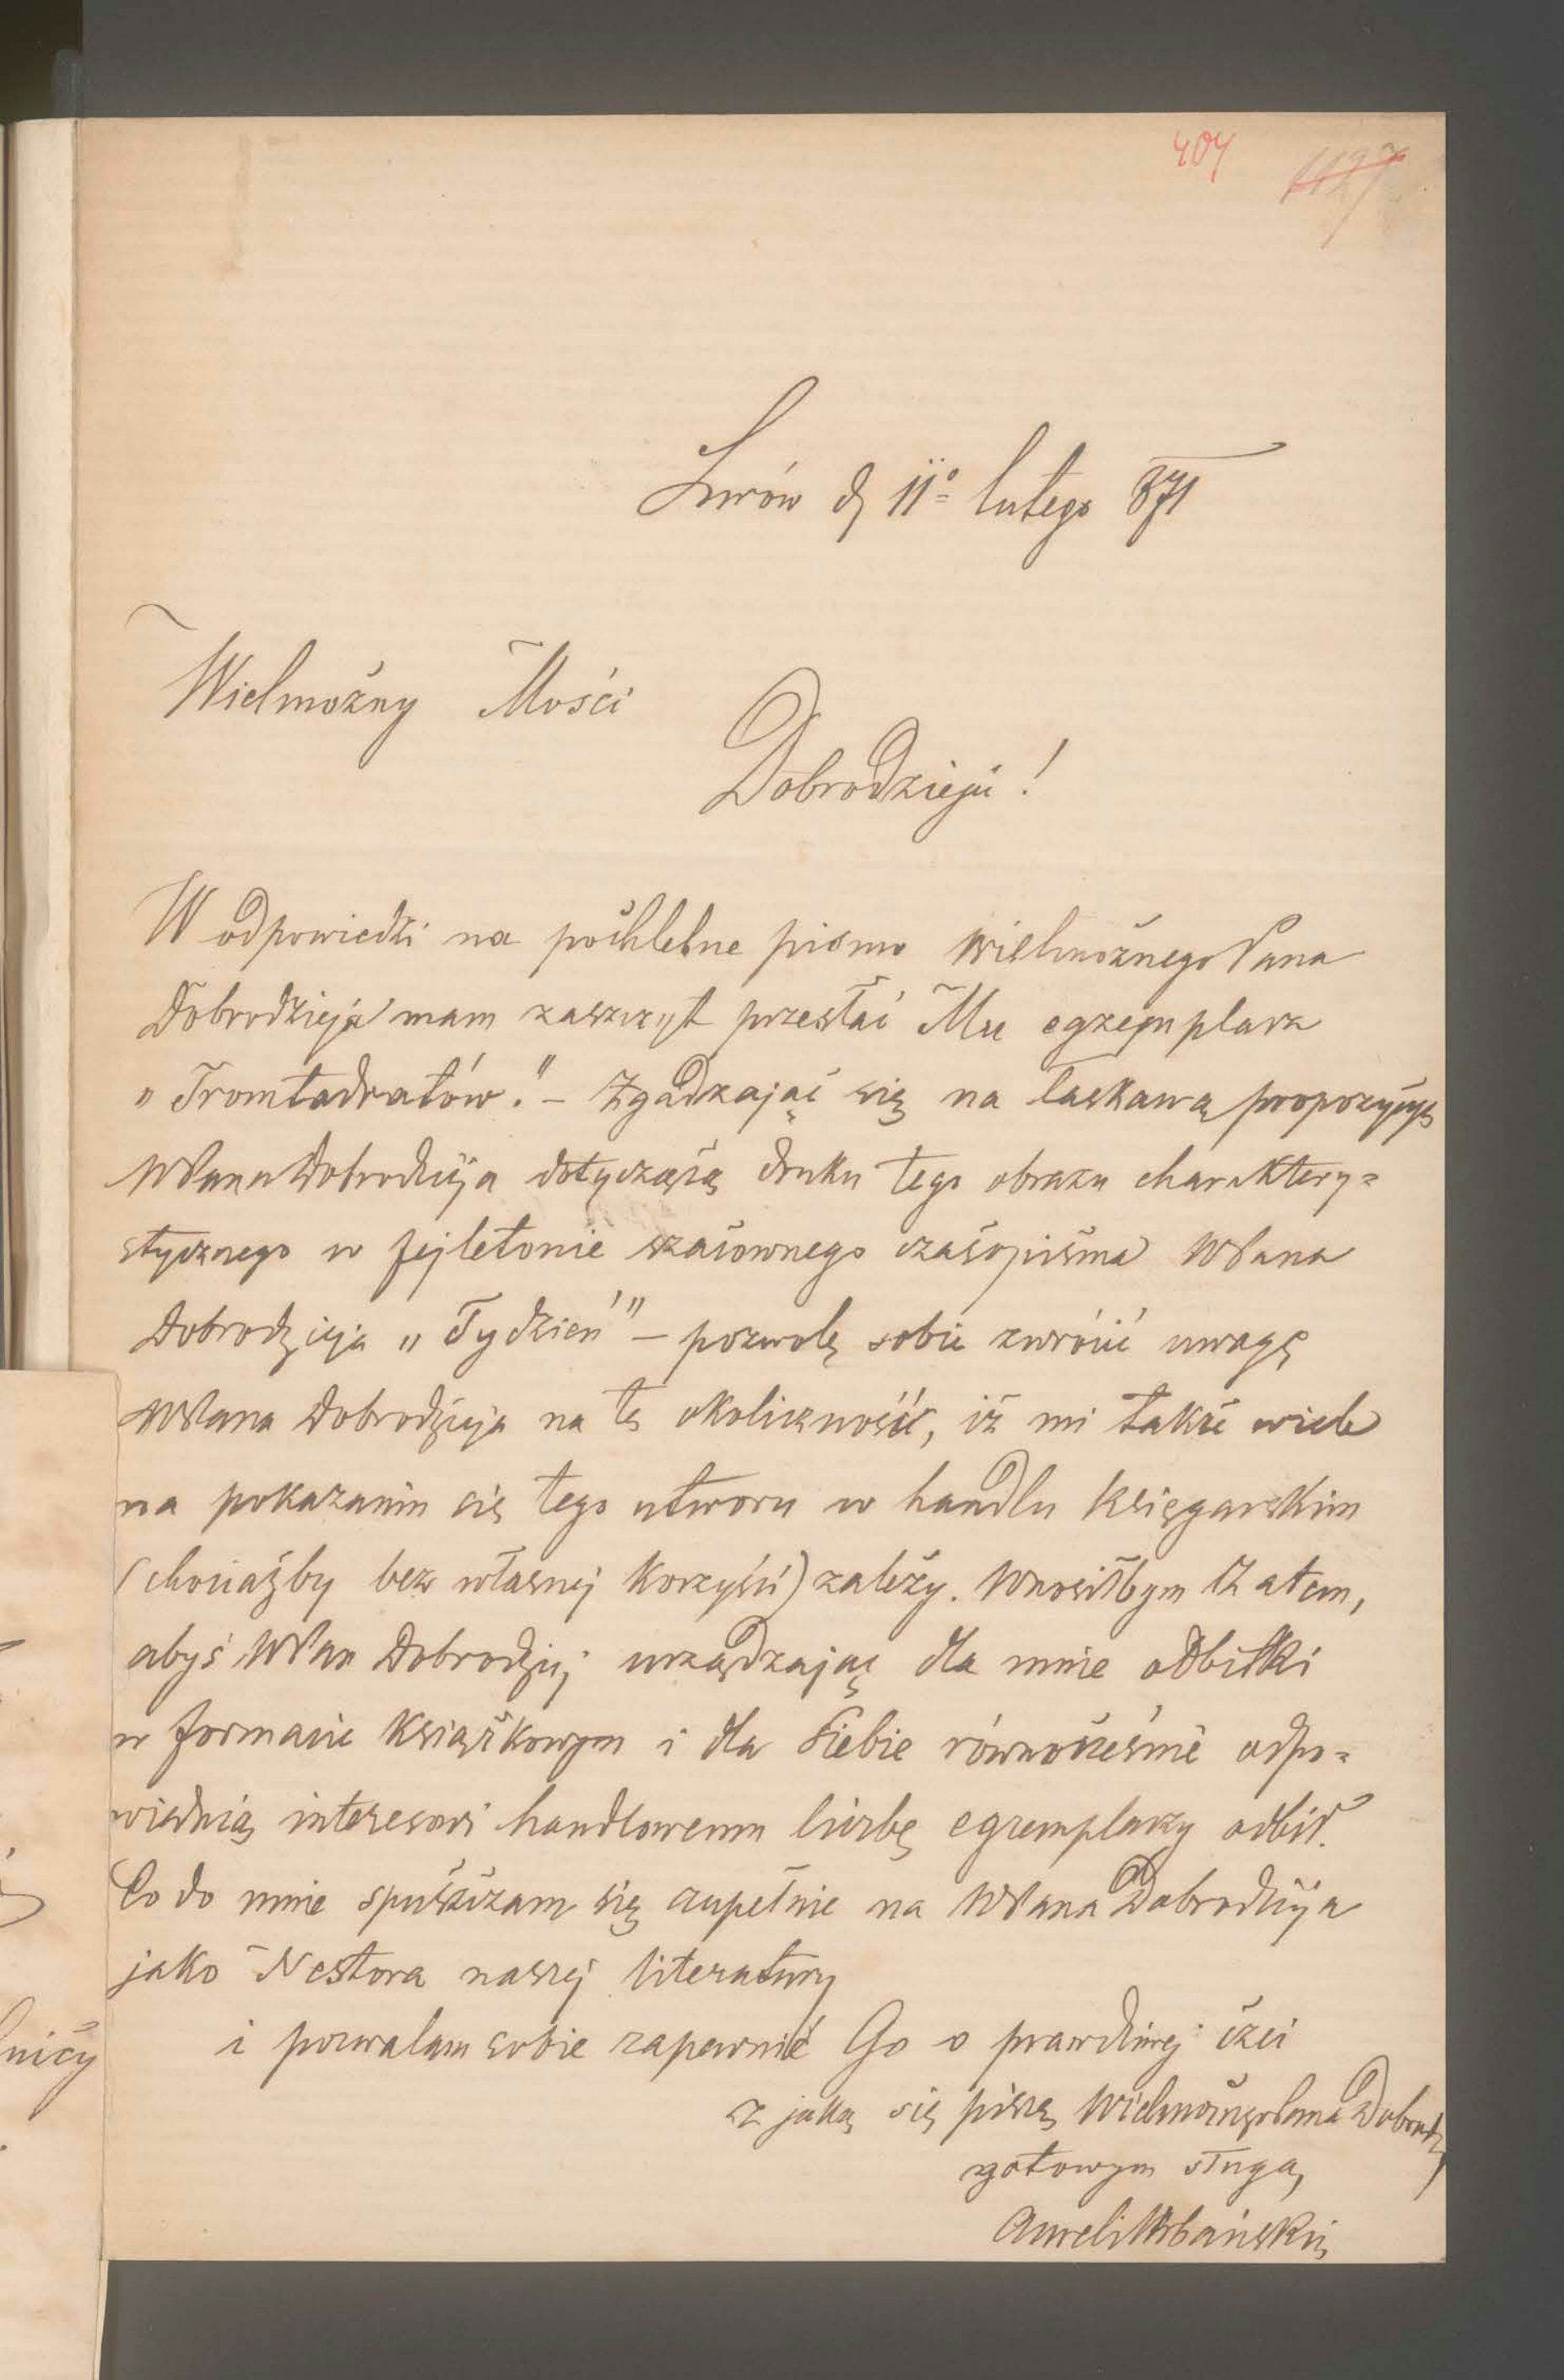 404 1127
Lwów d, 11º lutego 871
Wielmożny Mości
Dobrodzieju!
W odpowiedzi na pochlebne pismo Wielmożnego Pana
Dobrodzieja mam zaszczyt przesłać Mu egzemplarz
„Tromtadratów." – Zgadzając się na łaskawą propozycyę
WPana Dobrodzieja dotyczącą druku tego obrazu charaktery=
stycznego w fejletonie szanownego czasopisma WPana
Dobrodzieja „Tydzień" – pozwolę sobie zwrócić uwagę
WPana Dobrodzieja na tę okoliczność, iż mi także wiele
na pokazaniu się tego utworu w handlu księgarskim
(chociażby bez własnej korzyści) zależy. Wnosiłbym zatem,
abyś WPan Dobrodziej urządzając dla mnie odbitki
w formacie książkowym i dla siebie równocześnie odpo=
wiednią interesowi handlowemu liczbę egzemplarzy odbił.
Co do mnie spuszczam się zupełnie na WPana Dobrodzieja
jako Nestora naszej literatury
i pozwalam sobie zapewnić Go o prawdziwej czci
z jaką się piszę Wielmożnego Pana Dobrodz,
gotowym sługą,
Aureli Urbański